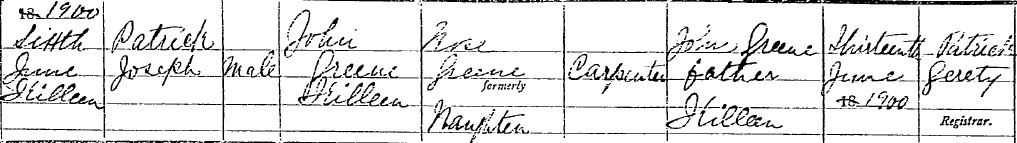 18. 1900
Sixth
June
Killeen
Patrick
Joseph
Male
John
Greene
Killeen
Rose
Greene
formerly
Naughten
Carpenter
John Greene
father
Killeen
Thirteenth
June
18 1900
Patrick
Gerety
Registrar.